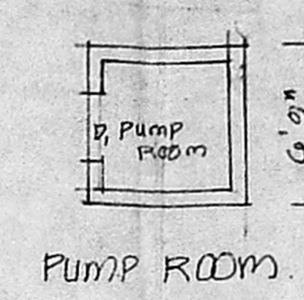 D, PUMP
ROOM
PUMP ROOM.